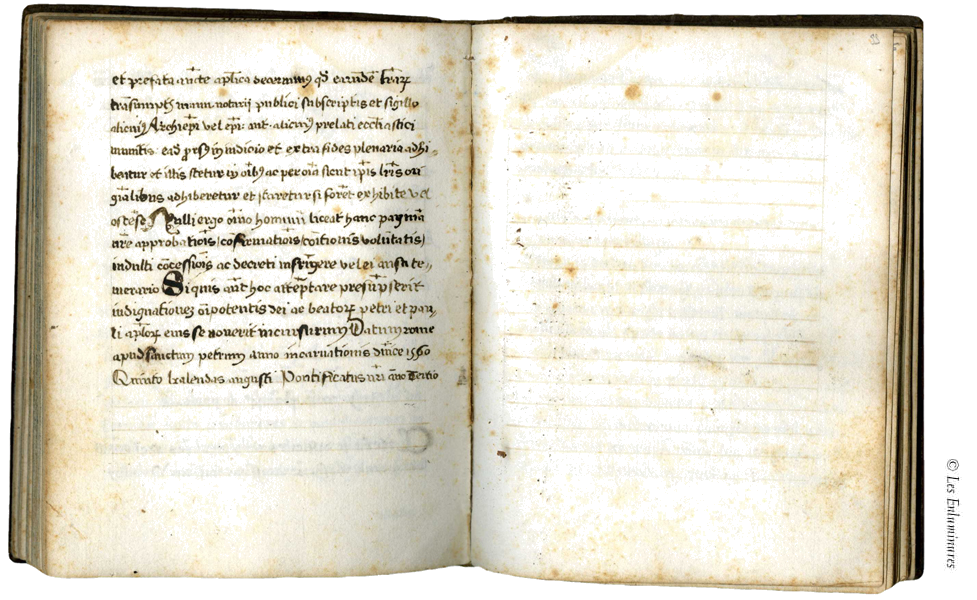 et prefata aucte aplica decernimus qd earundē lrarz
trasumptis manu notarii publici subscriptis et sigillo
alicuius Archiepi vel epi aut alicuius prelati eccliastici
munitis ead prorsus in iudicio et extra fides plenaria adhi-
beatur et illis stetur in oibus ac per oia sicut ipis lris ori
gialibus adhiberetur et staretur si foret exhibite vel
ostēse Nulli ergo oīno hominū liceat hanc paginā
nre approbatiōis cōfirmatiōis voluntatis
indulti cōcessiōis ac decreti infringere vel ei ausu te-
merario Si quis aut hoc attēptare presūpserit
indignationez oīpotentis dei ac beatorz petri et pau-
li aplorz eius se noverit incursurum Datum rome
apud sanctum petrum anno incarnationis dnice 1560
Quinto kalendas augusti Pontificatus nri āno Tertio
53
© Les Enluminures